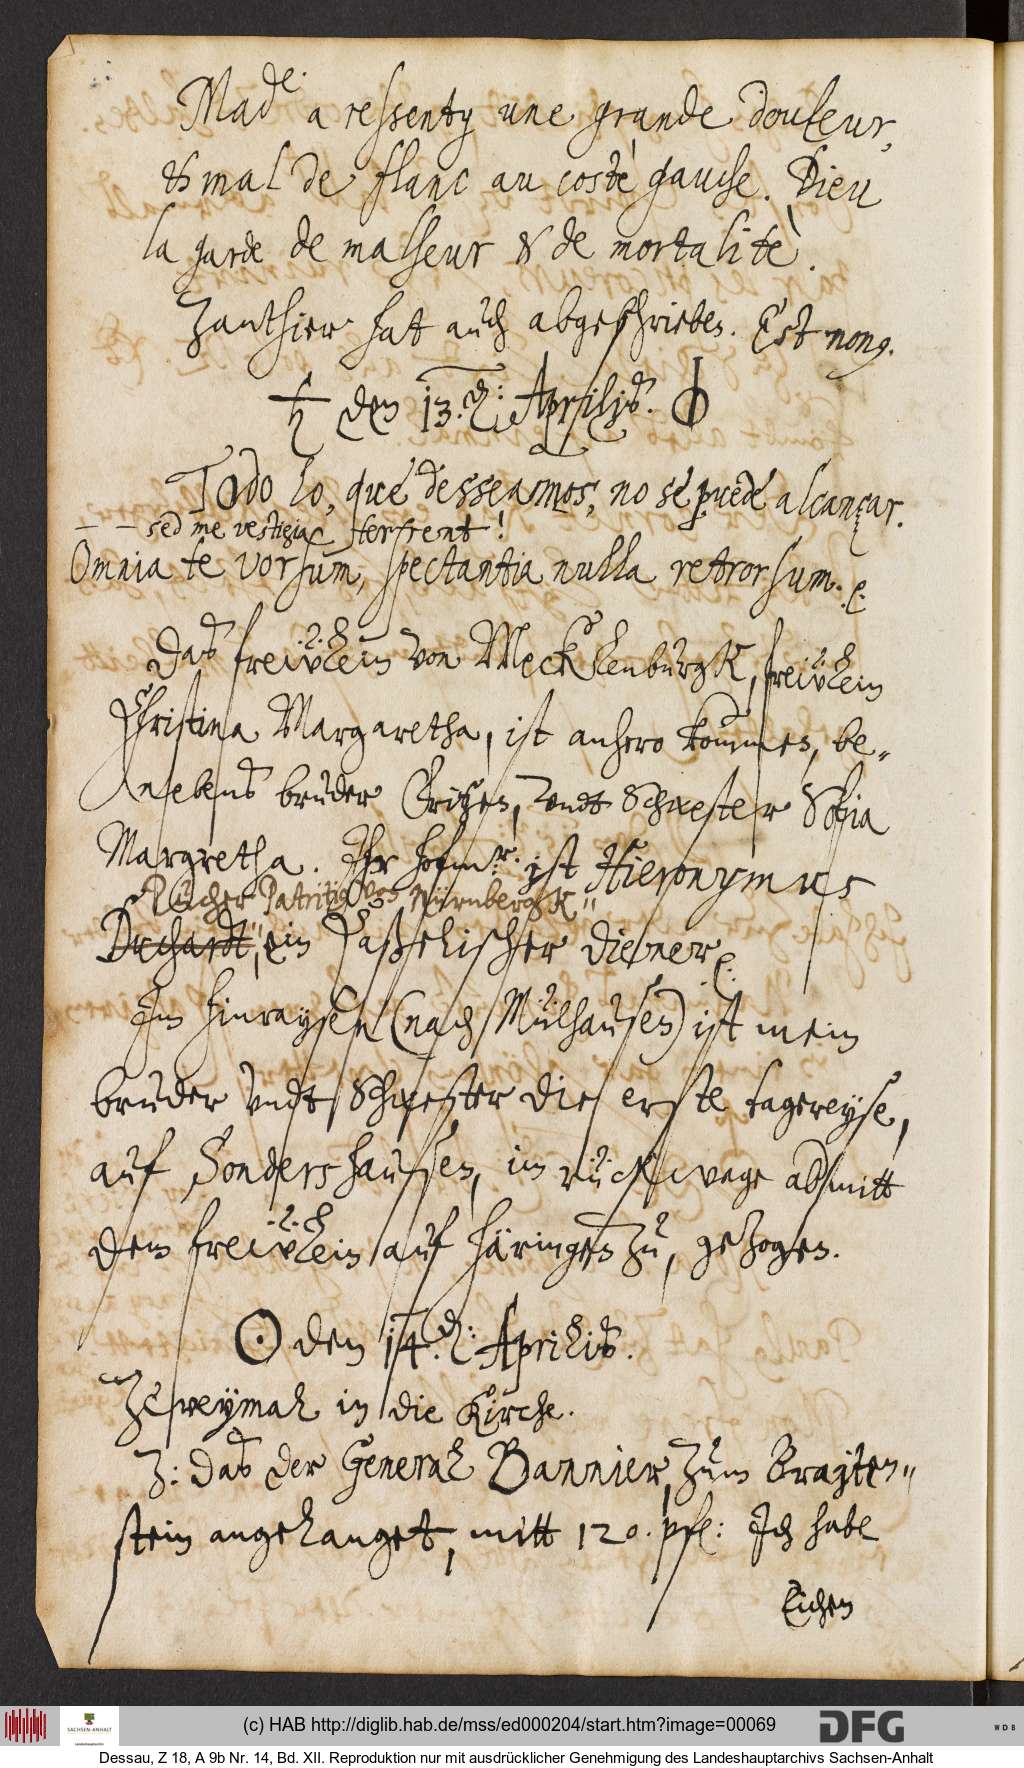 Mad.e a ressenty une grande douleur,
& mal de flanc au costè gausche. Dieu
la garde de malheur & de mortalitè.
Zanthier hat auch abgeschrieben. Est nong.
♄ den 13. d: Aprilis.
Todo lo, que desseamos, no se puede alcançar.
— — sed me vestigia terrent!
Omnia te vorsum, spectantia nulla retrorsum. &:
Das freẅlein von Mecklenburgk, freẅlein
Christina Margaretha, ist anhero kommen, be„
nebens bruder Fritzen, undt Schwester Sofia
Margretha. Ihr hofmr. ist Hieronymus
Rücher Patritius von Nürnbergk„
Duchardt, ein Caßelischer diener &:
Im hinraysen (nach Mülhausen) ist mein
bruder undt Schwester die erste tagereyse,
auf Sondershausen, im rückwege aber mitt
dem freẅlein auf häringen zu, gezogen.
☉ den 14. d: Aprilis.
Zweymal in die Kirche.
Z: das der General Bannier, zum Brayten„
stein angelanget, mitt 120. pfe: Ich habe
Eichen
(c) HAB http://diglib.hab.de/mss/ed000204/start.htm?image=00069
SACHSEN-ANHALT
DFG
WDB
Dessau, Z 18, A 9b Nr. 14, Bd. XII. Reproduktion nur mit ausdrücklicher Genehmigung des Landeshauptarchivs Sachsen-Anhalt